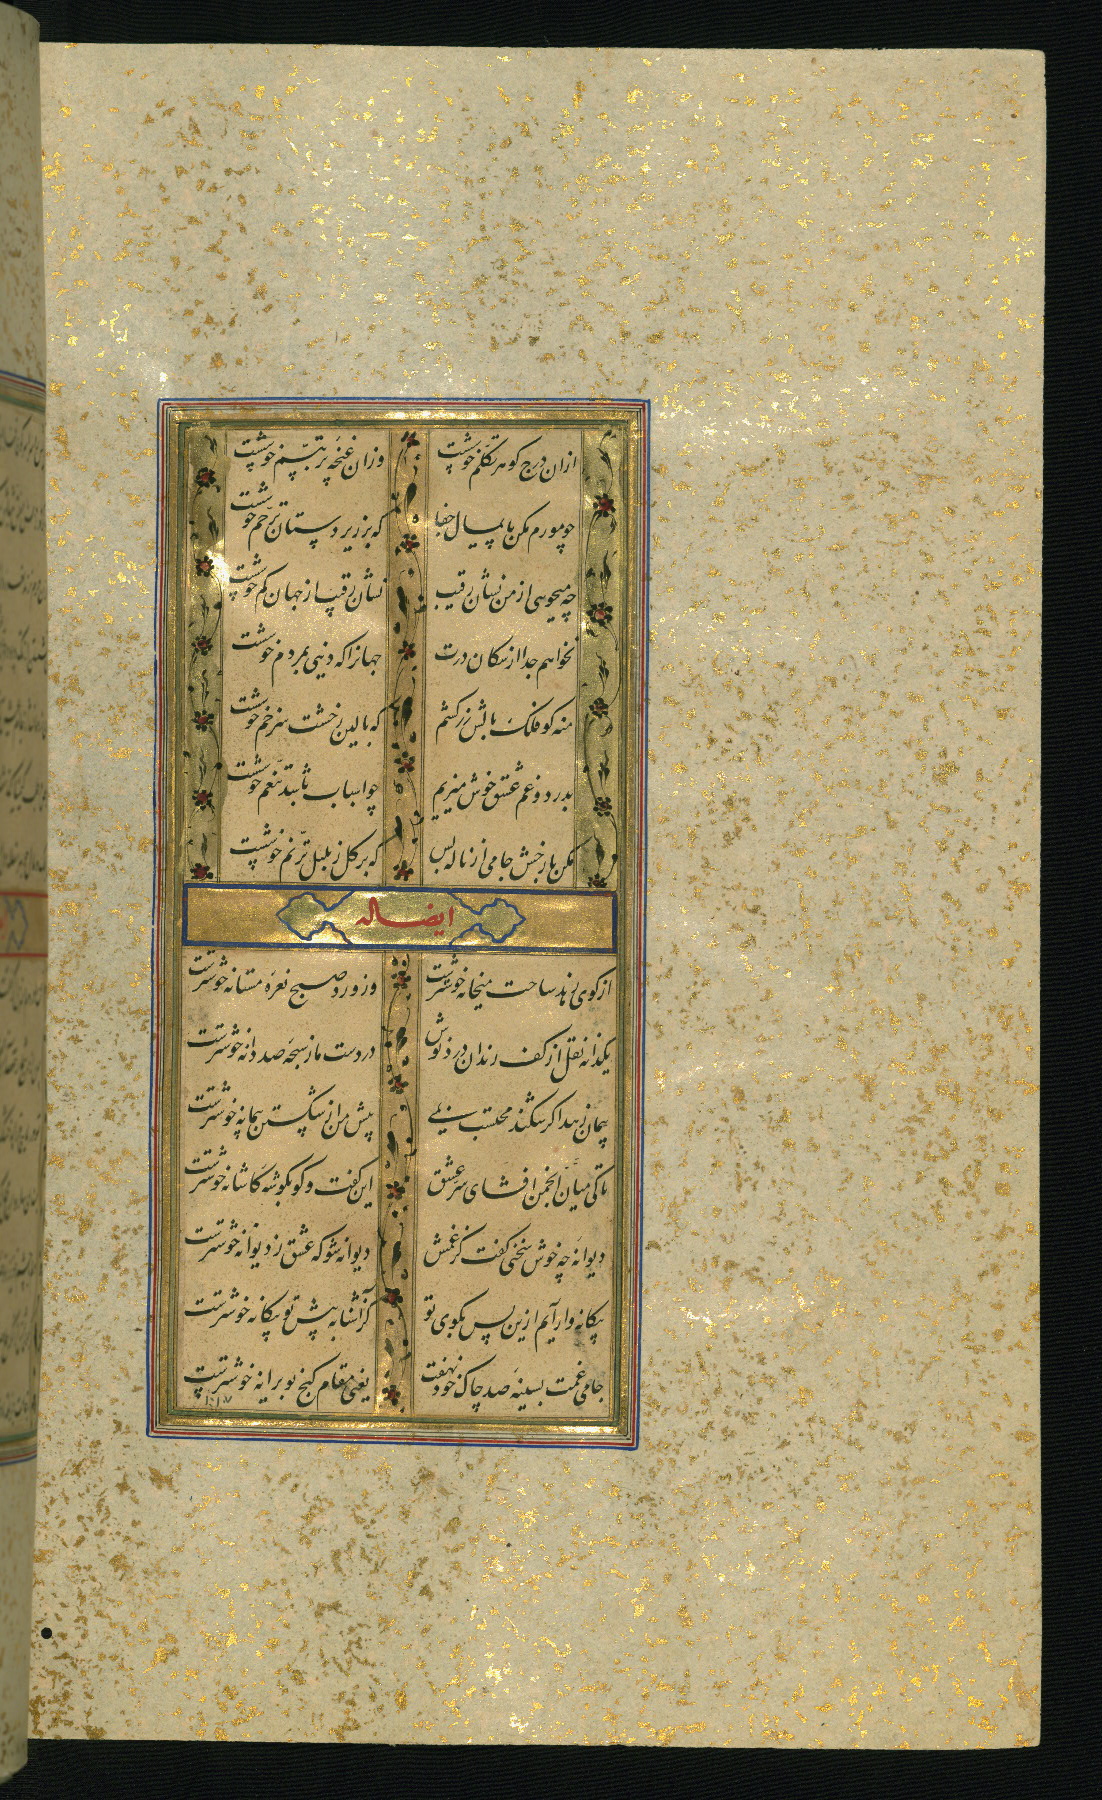 ازان درج کوهر تکلم خوشست وزان غنچه پر تبسم خوشست
چو مورم مکن پایمال جفا که بر زیر دستان ترحم خوشست
چه میجویی از من نشان رقیب نشان رقیب از جهان کم خوشست
نخواهم جدا از سکان درت جهانرا که دنیی بمردم خوشست
منه کو فلک بالش زرکشم که بالین ز خشت سر خم خوشست
بدرد و غم عشق خوش میزیم چو اسباب باشد تنعم خوشست
مکن بازخش جامی از ناله بس که بر کل ز بلبل ترنم خوشست
ایضاله
از کوی زهد ساحت میخانه خوشترست وز ورد صبح نعره مستانه خوشترست
یکدانه نقل از کف رندان درد نوش در دست ما ز سبحه صد دانه خوشترست
پیمان زهد اکر شکند محتسب نیی پیش من از شکستن پیمانه خوشترست
تا کی میان انجمن افشای سر عشق این کفت و کو بکوشه کاشانه خوشترست
دیوانه چه خوش سخنی کفت کز غمش دیوانه شو که عشق ز دیوانه خوشترست
بیکانه وار آیم ازین پس بکوی تو کز آشنا به پیش تو بیکانه خوشترست
جامی غمت بسینه صد چاک خود نهفت یعنی مقام کنج تو برانه خوشترست